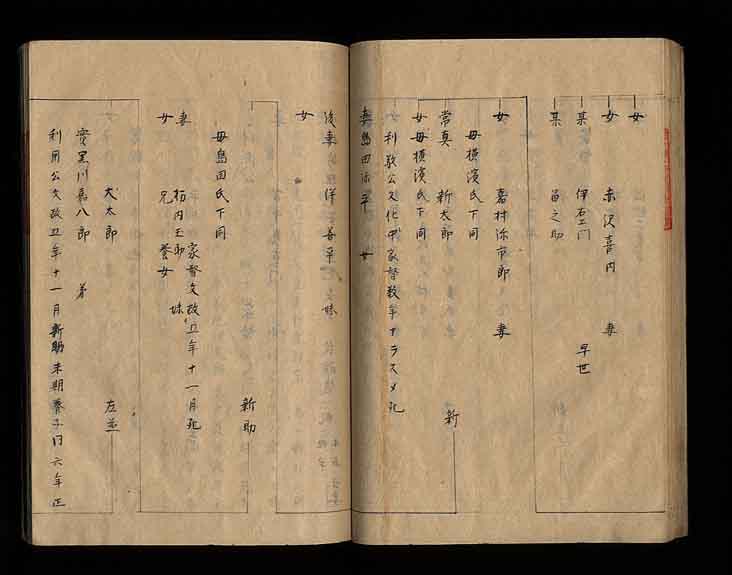 女
女 赤沢喜内 妻
某 伊右エ門 早世
某 留之助
女 嘉村弥市郎 妻
母横濱氏下同
常真 新太郎 新
女母横濱氏下同
利敬公文化中家督数年ナラスメ死
妻島田 平 女
後妻 善平 妹
女
新助
母島田氏下同
家督文政丑年十一月死
妻 内玉助 妹
女 兄 養女
左
犬太郎
實黒川嘉八郎 弟
利用公文政丑年十一月新助末期養子同六年正